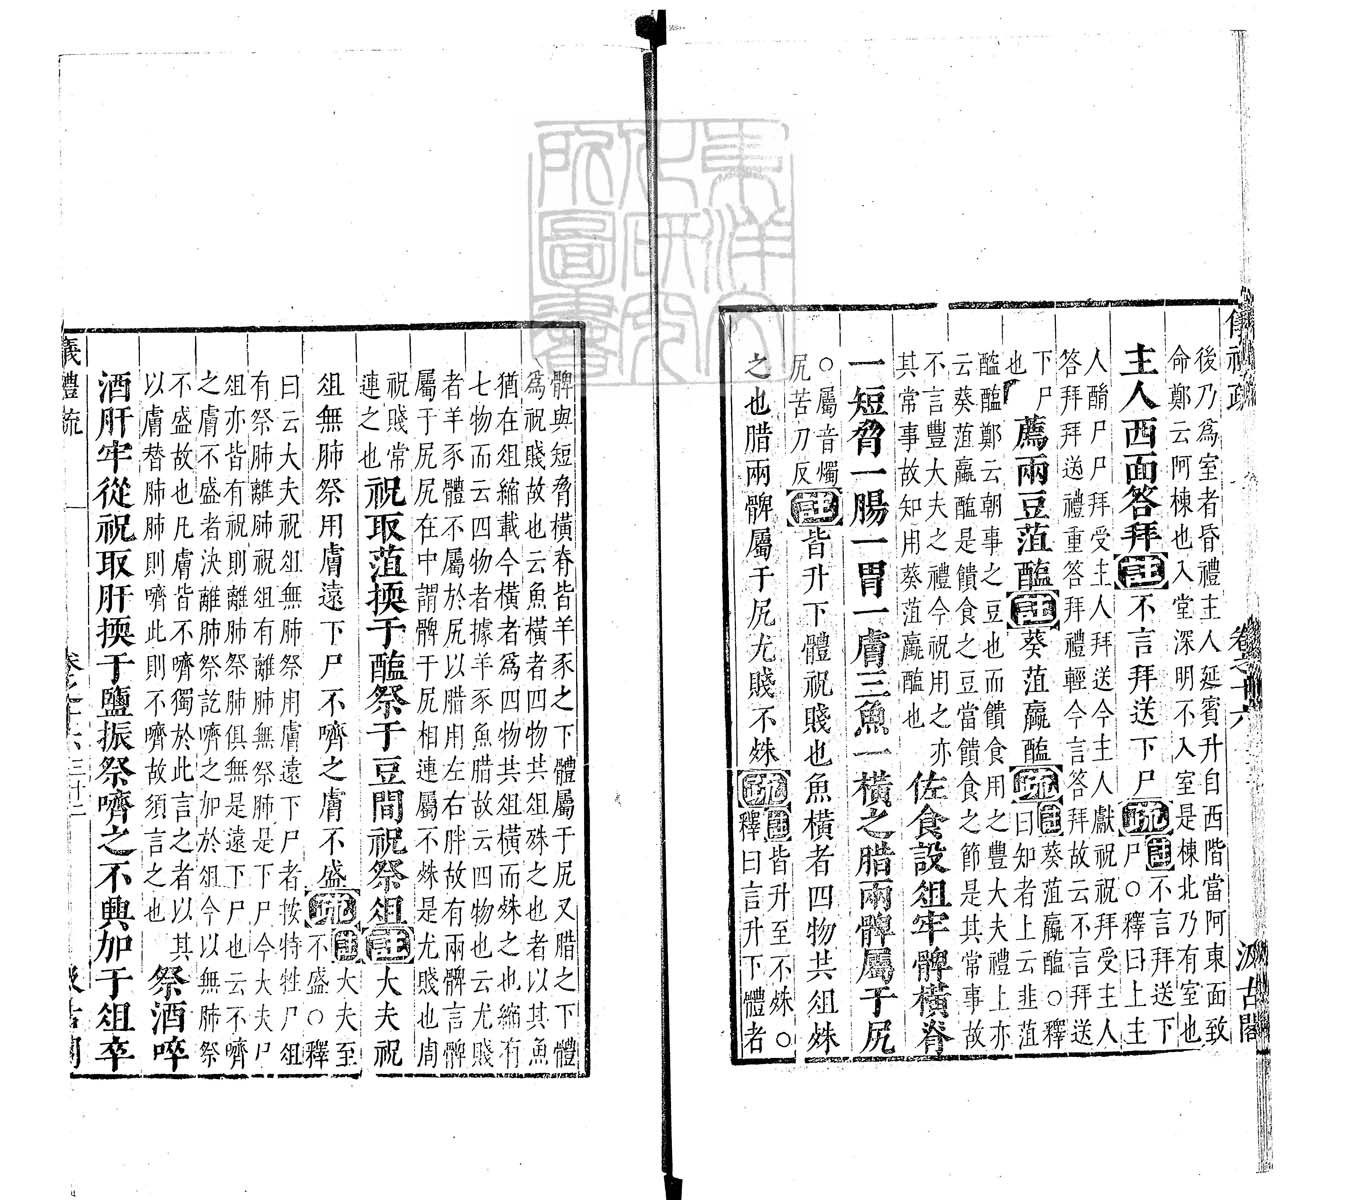 後乃爲室者昏禮主人延賓升自西階當阿東面致
命鄭云阿棟也入堂深明不入室是棟北乃有室也
主人西面答拜
註
不言拜送下尸
疏
註
不言拜送下
尸○釋曰上主
人酳尸尸拜受主人拜送今主人獻祝祝拜受主人
答拜拜送禮重答拜禮輕今言答拜故云不言拜送
下尸
也
薦兩豆菹醢
註
葵菹蠃醢
疏
註
葵菹蠃醢○釋
曰知者上云韭菹
醓醢鄭云朝事之豆也而饋食用之豐大夫禮上亦
云葵菹蠃醢是饋食之豆當饋食之節是其常事故
不言豐大夫之禮今祝用之亦
其常事故知用葵菹蠃醢也
佐食設俎牢髀橫脊
一短脅一腸一胃一膚三魚一橫之腊兩髀屬于尻
○屬音燭
尻苦刀反
註
皆升下體祝賤也魚橫者四物共俎殊
之也腊兩髀屬于尻尤賤不殊
疏
註
皆升至不殊○
釋曰言升下體者
髀與短脅橫脊皆羊豕之下體屬于尻又腊之下體
爲祝賤故也云魚橫者四物共俎殊之也者以其魚
猶在俎縮載今橫者爲四物共俎橫而殊之也縮有
七物而云四物者據羊豕魚腊故云四物也云尤賤
者羊豕體不屬於尻以腊用左右胖故有兩髀言髀
屬于尻尻在中謂髀于尻相連屬不殊是尤賤也周
祝賤常
連之也
祝取菹擩于醢祭于豆間祝祭俎
註
大夫祝
俎無肺祭用膚遠下尸不嚌之膚不盛
疏
註
大夫至
不盛○釋
曰云大夫祝俎無肺祭用膚遠下尸者按特牲尸俎
有祭肺離肺祝俎有離肺無祭肺是下尸今大夫尸
俎亦皆有祝則離肺祭肺俱無是遠下尸也云不嚌
之膚不盛者決離肺祭訖嚌之加於俎今以無肺祭
不盛故也凡膚皆不嚌獨於此言之者以其
以膚替肺肺則嚌此則不嚌故須言之也
祭酒啐
酒肝牢從祝取肝擩于鹽振祭嚌之不興加于俎卒
儀禮疏
卷之十六
三十二
汲古閣